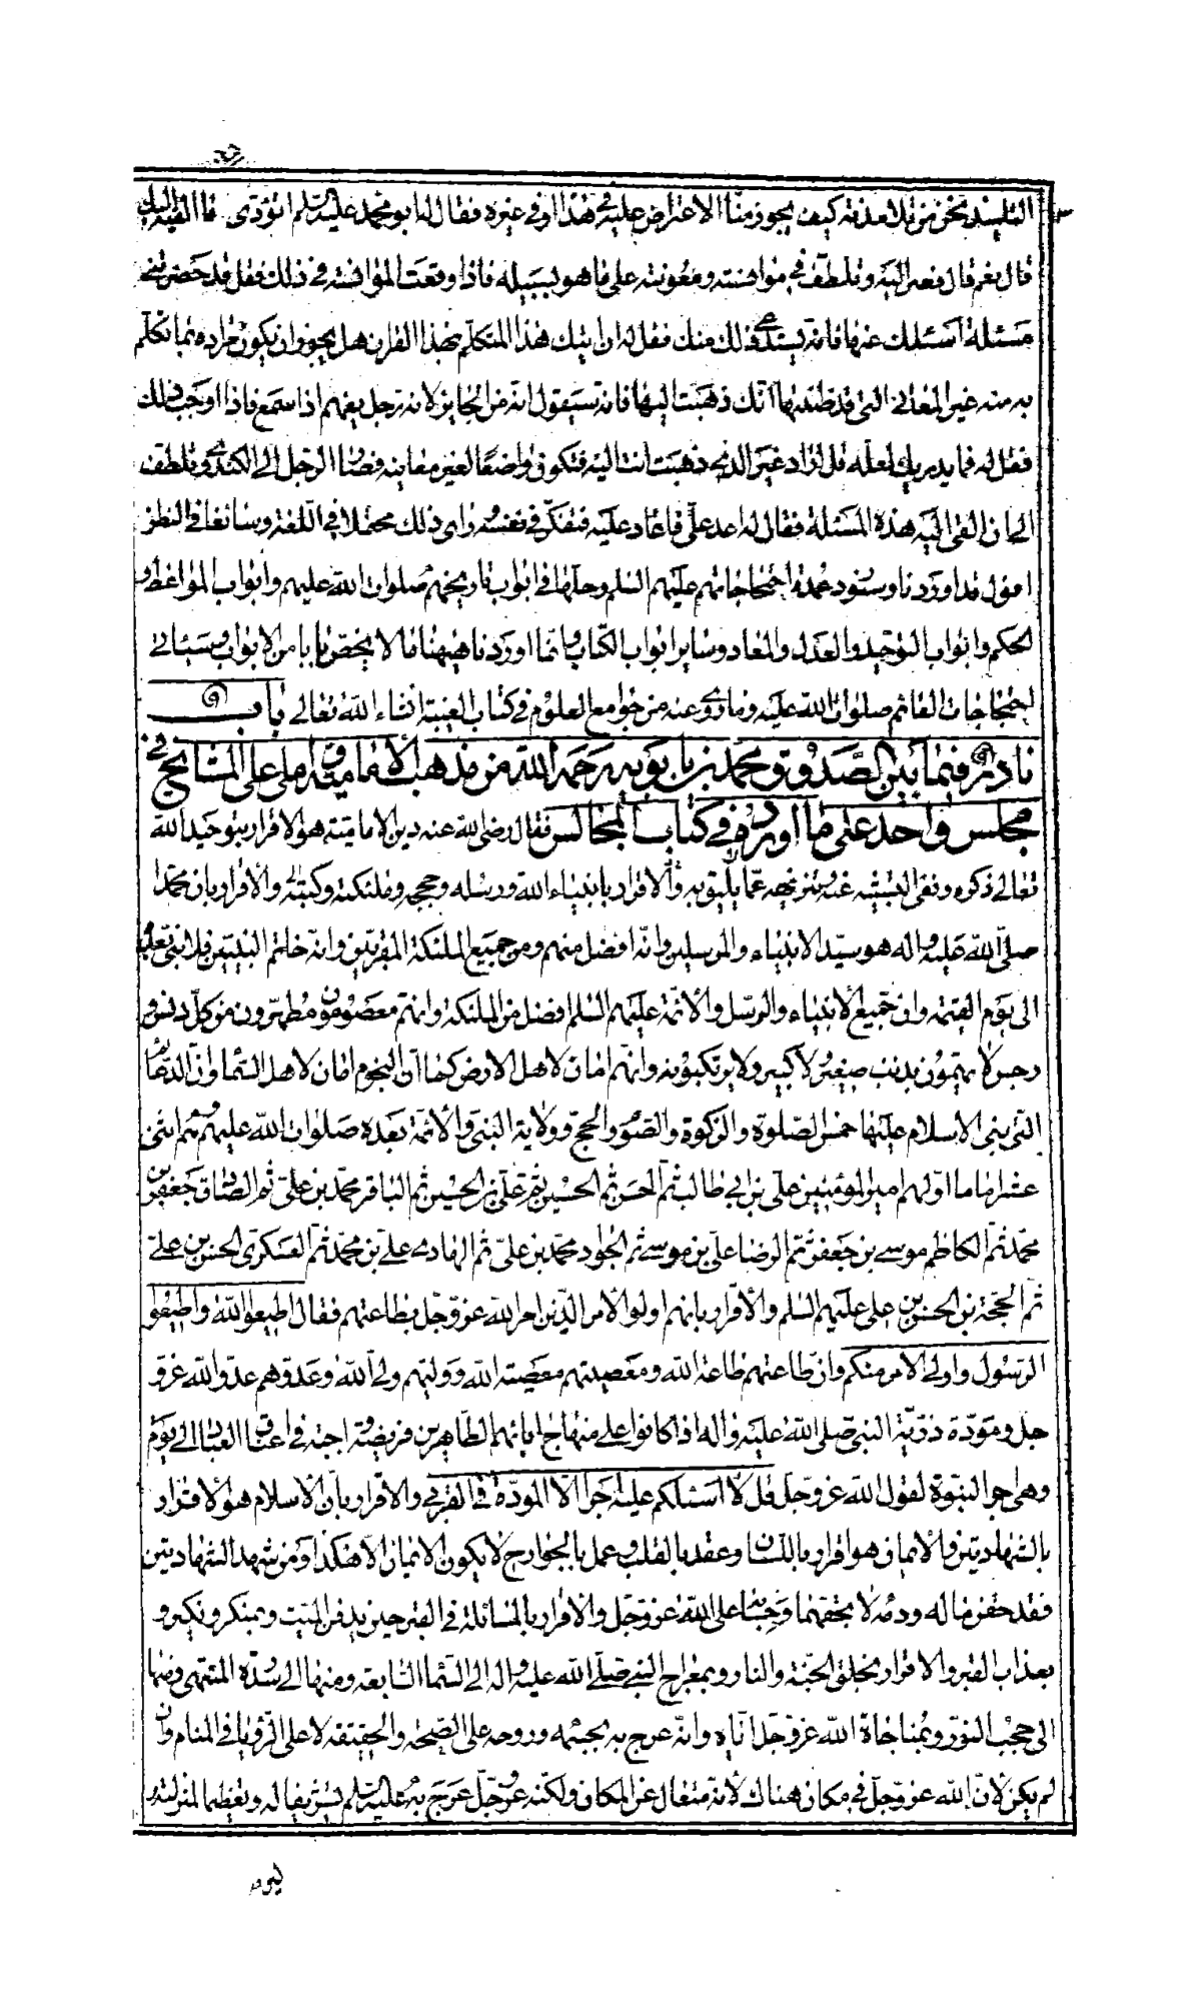 التلميذ نحن من تلامذته كيف يجوز منا الاعتراض عليه في هذا او في غيره فقال له ابو محمد عليه السلم اتؤدى ما القيه اليك
قال نعم قال فصر اليه وتلطف في مؤانسته ومعونته على ما هو بسبيله فاذا وقعت المؤانسة في ذلك فقل قد حضرتني
مسئلة اسئلك عنها فانه يستدعي ذلك منك فقل له ان اتيك هذا المتكلم بهذا القران هل يجوز ان يكون مراده بما تكلم
به منه غير المعاني التي قد ظننتها انك ذهبت اليها فانه سيقول انه من الجايز لانه رجل يفهم اذا سمع فاذا اوجب ذلك
فقل له فما يدريك لعله قد اراد غير الذي ذهبت انت اليه فتكون واضعا لغير معانيه فصار الرجل الى الكندي وتلطف
الى ان القى اليه هذه المسئلة فقال له اعد علي فاعاد عليه فتفكر في نفسه وراى ذلك محتملا في اللغة وسائغا في النظر
اقول قد اوردنا وسنورد عمدة احتجاجاتهم عليهم السلم وجلها في ابواب تاريخهم صلوات الله عليهم وابواب المواعظ و
الحكم وابواب التوحيد والعدل والمعاد وساير ابواب الكتاب وانما اوردنا هيهنا ما لا يختص بابا من الابواب وسيئاتي
احتجاجات القائم صلوات الله عليه وما روي عنه من جوامع العلوم في كتاب الغيبة انشاء الله تعالى باب
نادر فيما بين الصدوق محمد بن بابويه رحمه الله من مذهب الامامية واملى على المشايخ في
مجلس واحد على ما اورده في كتاب المجالس فقال رضي الله عنه دين الامامية هو الاقرار بتوحيد الله
تعالى ذكره ونفى التشبيه عنه وتنزيهه عما لا يليق به والاقرار بانبياء الله ورسله وحججه وملئكته وكتبه والاقرار بان محمدا
صلى الله عليه واله هو سيد الانبياء والمرسلين وانه افضل منهم ومن جميع الملئكة المقربين وانه خاتم النبيين فلا نبي بعده
الى يوم القيمة وان جميع الانبياء والرسل والائمة عليهم السلم افضل من الملئكة وانهم معصومون مطهرون من كل دنس و
رجس لا يهمون بذنب صغير ولا كبير ولا يرتكبونه وانهم امان لاهل الارض كما ان النجوم امان لاهل السماء وان الدعائم
التي بنى الاسلام عليها خمس الصلوة والزكوة والصوم والحج وولاية النبي والائمة بعده صلوات الله عليهم وهم اثنى
عشر اماما اولهم امير المؤمنين علي بن ابي طالب ثم الحسن ثم الحسين ثم علي بن الحسين ثم الباقر محمد بن علي ثم الصادق جعفر بن
محمد ثم الكاظم موسى بن جعفر ثم الرضا علي بن موسى ثم الجواد محمد بن علي ثم الهادي علي بن محمد ثم العسكري الحسن بن علي
ثم الحجة بن الحسن بن علي عليهم السلم والاقرار بانهم اولو الامر الذين امر الله عز وجل بطاعتهم فقال اطيعوا الله واطيعوا
الرسول واولى الامر منكم وان طاعتهم طاعة الله ومعصيتهم معصية الله ووليهم ولى الله وعدوهم عدو الله عز و
جل ومودة ذرية النبي صلى الله عليه واله اذا كانوا على منهاج ابائهم الطاهرين فريضة واجبة في اعناق العباد الى يوم
وهي اجر النبوة لقول الله عز وجل قل لا اسئلكم عليه اجرا الا المودة في القربى والاقرار بان الاسلام هو الاقرار
بالشهادتين والايمان هو اقرار باللسان وعقد بالقلب وعمل بالجوارح لا يكون الايمان الا هكذا ومن شهد الشهادتين
فقد حقن ماله ودمه الا بحقهما وحسابه على الله عز وجل والاقرار بالمسائلة في القبر حين يدفن الميت وبمنكر ونكير و
بعذاب القبر والاقرار بخلق الجنة والنار وبمعراج النبي صلى الله عليه واله الى السماء السابعة ومنها الى سدرة المنتهى ومنها
الى حجب النور وبمناجاة الله عز وجل اياه وانه عرج به بجسمه وروحه على الصحة والحقيقة لا على الرؤيا في المنام وان
لم يكن لان الله عز وجل في مكان هناك لانه متعال عن المكان ولكنه عز وجل عرج به عليه السلم تشريفا له وتعظيما لمنزلته